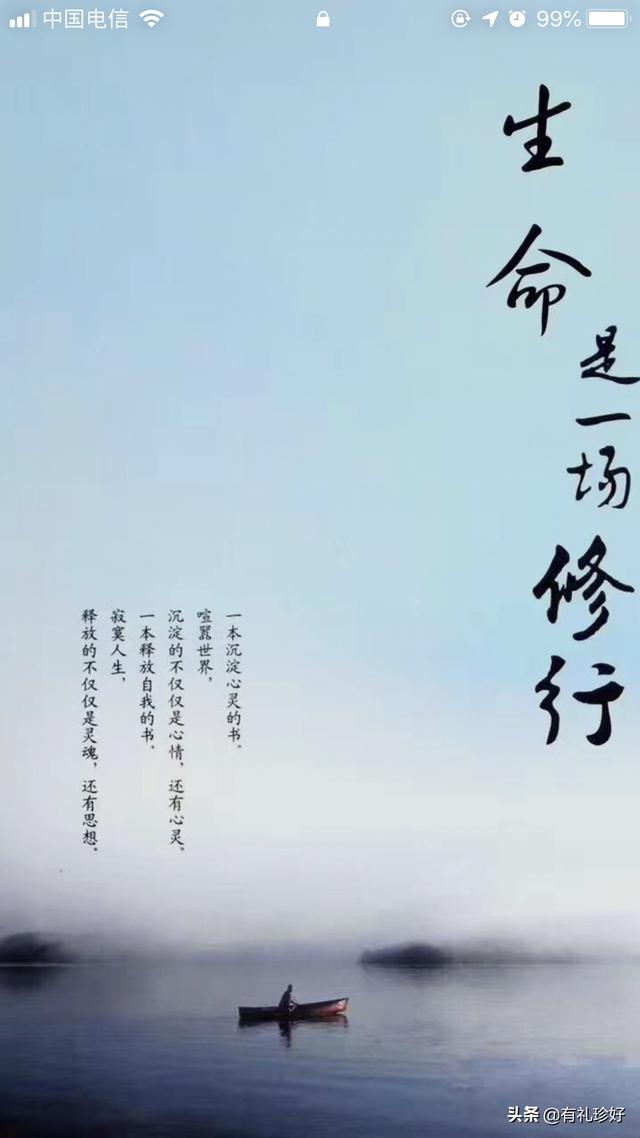 中国电信
99%
生命是一场修行
一本沉淀心灵的书。
喧嚣世界，
沉淀的不仅仅是心情，还有心灵。
一本释放自我的书。
寂寞人生，
释放的不仅仅是灵魂，还有思想。
头条 @有礼珍好